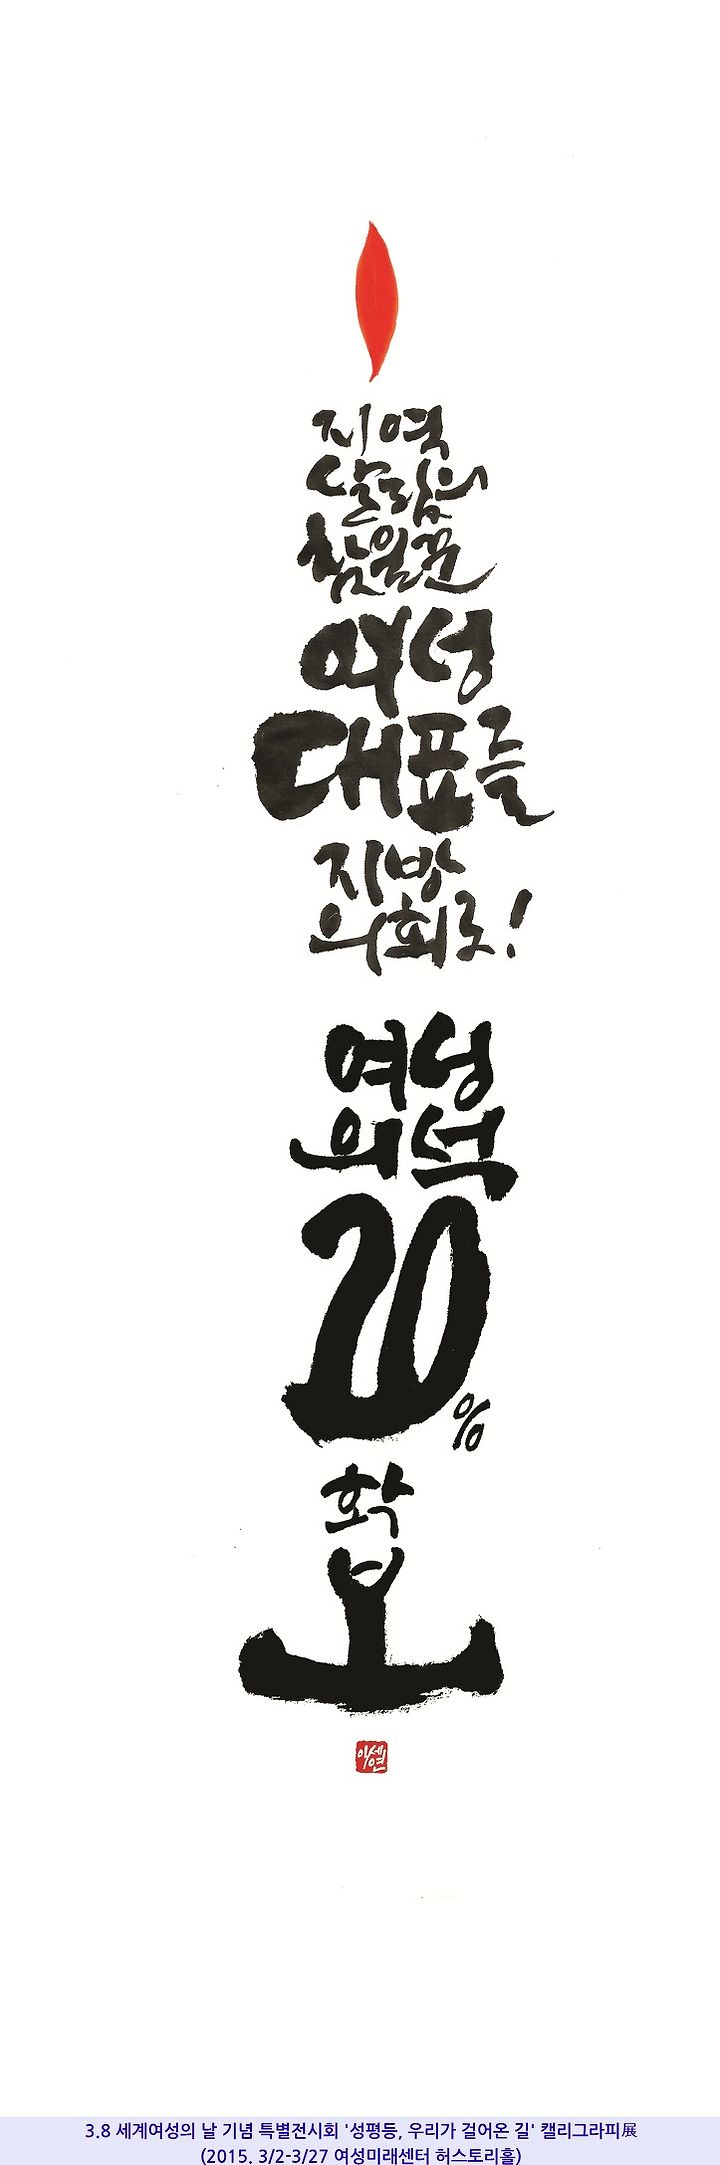 지역
살림의
참일꾼
여성
대표들
지방
의회로!
여성
의석
20%
확
보
이세연
3.8 세계여성의 날 기념 특별전시회 '성평등, 우리가 걸어온 길' 캘리그라피展
(2015. 3/2-3/27 여성미래센터 허스토리홀)